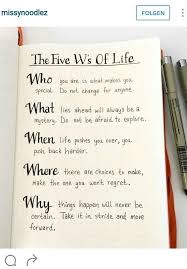 missynoodlez
FOLGEN
The Five W's Of Life
Who you are is what makes you
special. Do not change for anyone.
What lies ahead will always be a
mystery. Do not be afraid to explore.
When life pushes you over, you
push back harder.
Where there are choices to make,
make the one you won't regret.
Why things happen will never be
certain. Take it in stride and move
forward.